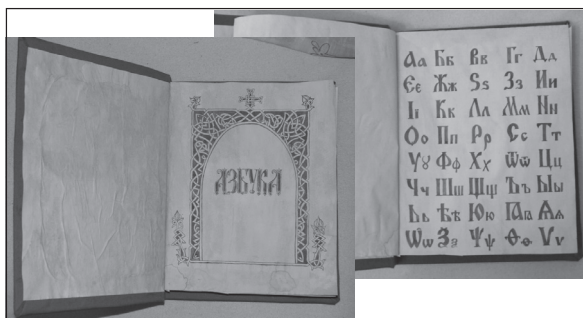 АЗБУКА
Аа Бб Вв Гг Дд
Єє Жж Ѕѕ Зз Ии
Іі Кк Лл Мм Нн
Оо Пп Рр Сс Тт
Уꙋ Фф Хх Ѿѿ Цц
Чч Шш Щщ Ъъ Ыы
Ьь Ѣѣ Юю Ꙗꙗ Ѧѧ
Ѡѡ Ѱѱ Ѳѳ Ѵѵ